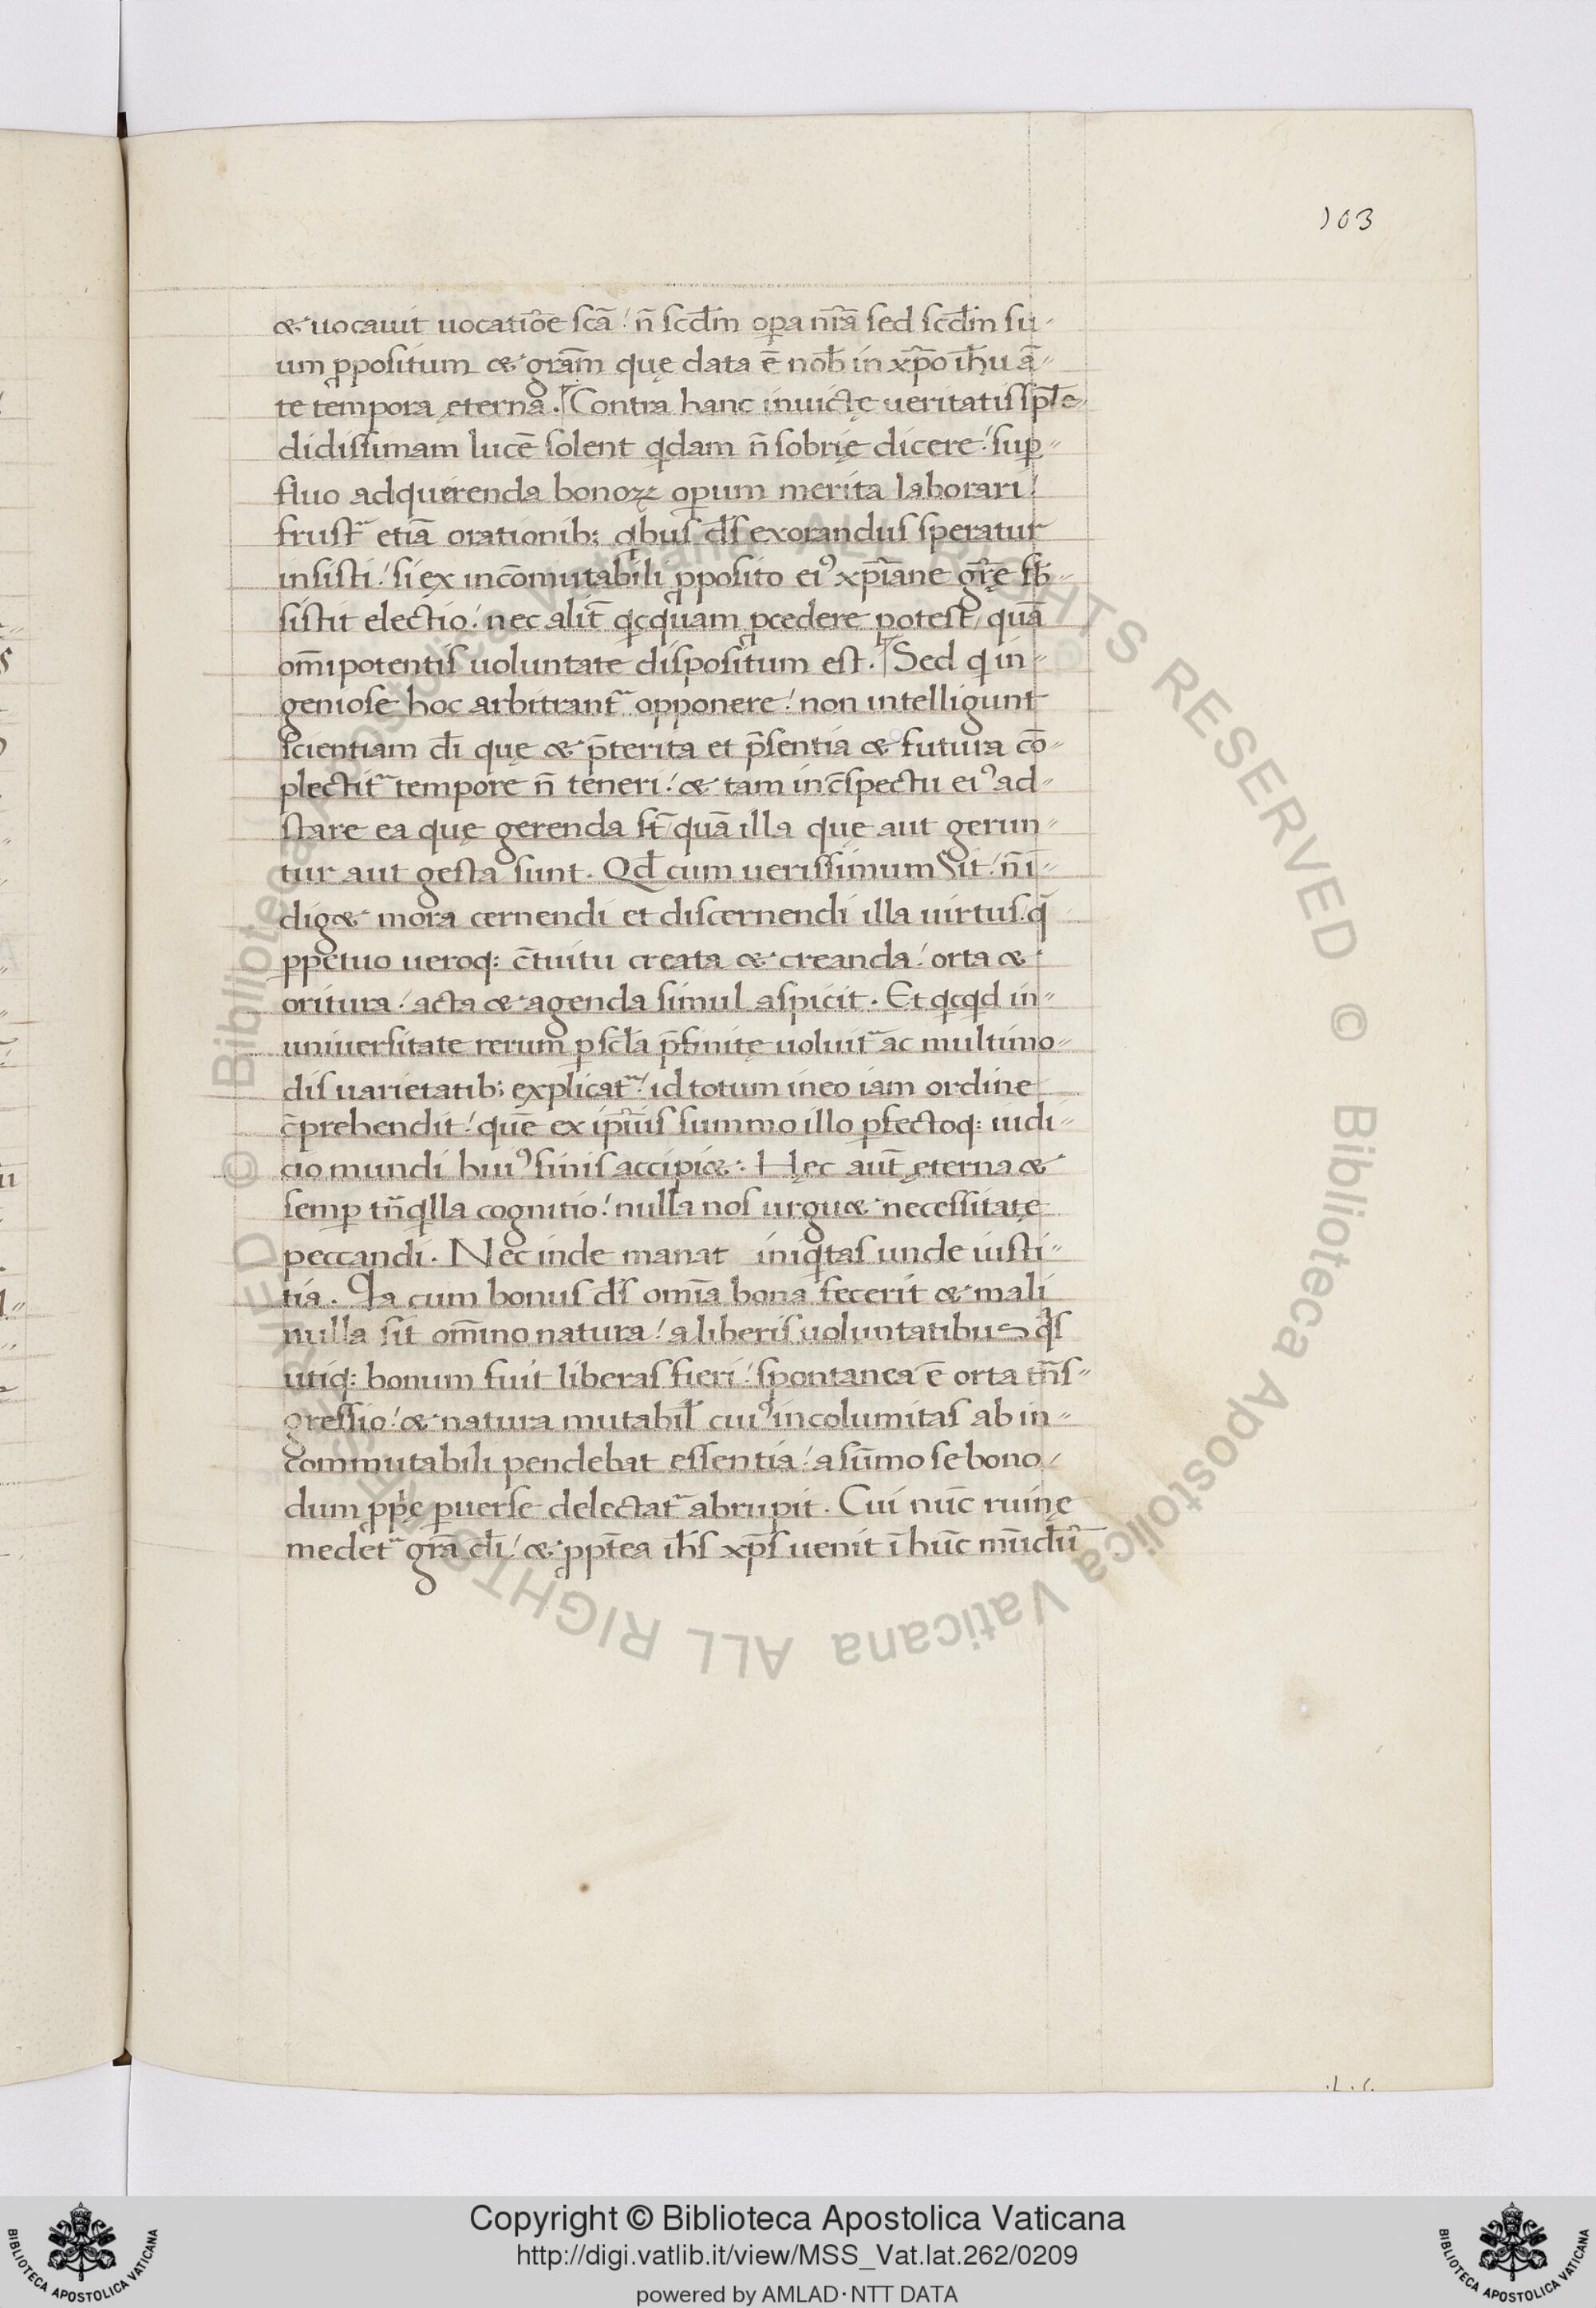 103
& uocauit uocatiōe scā! n̄ scd̄m oꝑa nr̄a sed scd̄m su-
um ꝓpositum & gr̄am quę data ē nob̄ in xp̄o ih̄u ā-
te tempora ęterna. Contra hanc inuictę ueritatis splē-
didissimam lucē solent qdam n̄ sobrię dicere! suꝑ-
fluo adquirenda bonoꝝ oꝑum merita laborari!
frustᷓ etiā orationib; qbus ds̄ exorandus speratur
insisti! si ex incōmutabili ꝓposito eiꝰ xp̄iane gr̄ę sb̄-
sistit electio! nec alit̄ qcquam ꝓcedere potest, quā
om̄ipotentis uoluntate dispositum est. Sed q in-
geniose hoc arbitrantᷣ opponere! non intelligunt
scientiam dī quę & p̄terita et p̄sentia & futura cō-
plectitᷣ tempore n̄ teneri! & tam in c̄spectu eiꝰ ad-
stare ea quę gerenda st̄ quā illa quę aut gerun-
tur aut gesta sunt. Qd̄ cum uerissimum sit! n̄ i-
dig& mora cernendi et discernendi illa uirtus. q̄
ꝑpetuo ueroq: c̄tuitu creata & creanda! orta &
oritura! acta & agenda simul aspicit. Et qcqd in-
uniuersitate rerum ꝑ scl̄a p̄finite uoluitᷣ ac multimo-
dis uarietatib; explicatᷣ! id totum in eo iam ordine
c̄prehendit! quē ex ipīus summo illo ꝑfectoq: iudi-
cio mundi huiꝰ finis accipi&. Hęc aut̄ ęterna &
semꝑ tn̄qlla cognitio! nulla nos urgu& necessitate
peccandi. Nec inde manat iniqtas unde iusti-
tia. Ia cum bonus ds̄ om̄ia bona fecerit & mali
nulla sit om̄ino natura! a liberis uoluntatibus qͣs
utiq: bonum fuit liberas fieri! spontanea ē orta tn̄s-
gressio! & natura mutabil̄ cuiꝰ incolumitas ab in-
commutabili pendebat essentia! a sūmo se bono
dum ꝓp̄e ꝑuerse delectatᷣ abrupit. Cui nūc ruinę
medetᷣ gr̄a dī! & ꝓpt̄ea ih̄s xp̄s uenit ī hūc mūdū
Copyright © Biblioteca Apostolica Vaticana
http://digi.vatlib.it/view/MSS_Vat.lat.262/0209
powered by AMLAD·NTT DATA
BIBLIOTECA APOSTOLICA VATICANA
BIBLIOTECA APOSTOLICA VATICANA
© Biblioteca Apostolica Vaticana ALL RIGHTS RESERVED
© Biblioteca Apostolica Vaticana ALL RIGHTS RESERVED